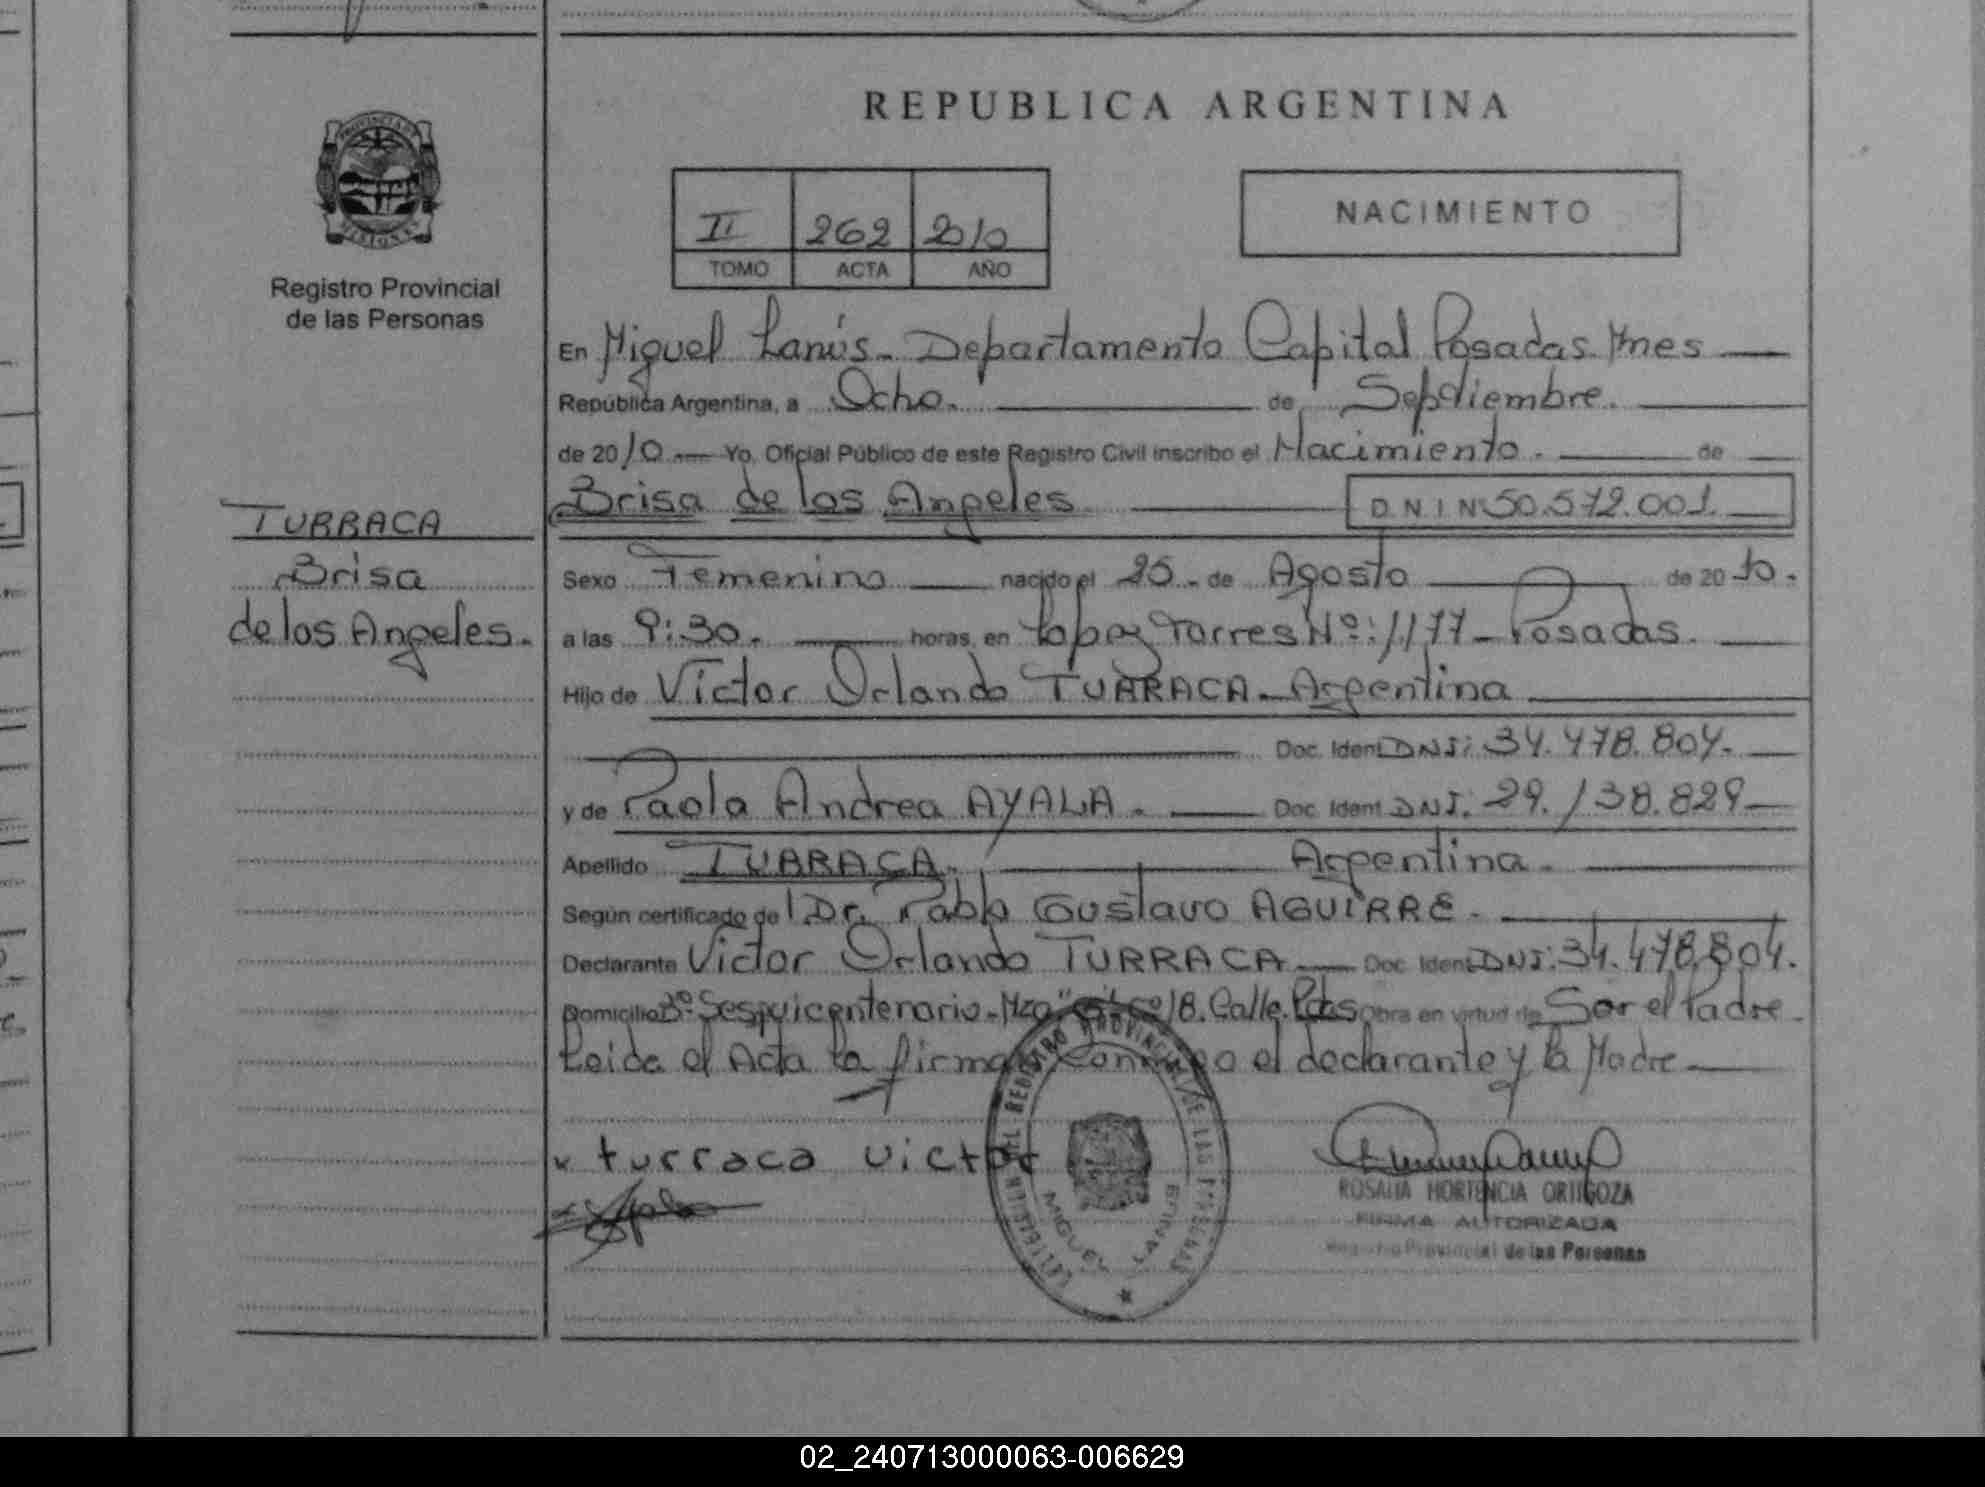 REPUBLICA ARGENTINA
PROVINCIA DE
MISIONES
Registro Provincial
de las Personas
II 262 2010
TOMO ACTA AÑO
NACIMIENTO
En Miguel Lanús - Departamento Capital Posadas. Mnes
República Argentina, a Ocho. de Septiembre.
de 2010 Yo, Oficial Público de este Registro Civil inscribo el Nacimiento. de
Brisa de los Angeles D N I Nº 50.572.001.
TURRACA
Brisa
de los Angeles.
Sexo Femenino nacido el 25 - de Agosto de 2010.
a las 9:30. horas, en Lopez Torres Nº: 1177 - Posadas.
Hijo de Víctor Orlando TURRACA - Argentina
Doc. Ident. DNI: 34.478.804.
y de Paola Andrea AYALA. Doc. Ident. DNI: 29.138.829
Apellido TURRACA. Argentina.
Según certificado de Dr. Pablo Gustavo AGUIRRE.
Declarante Victor Orlando TURRACA Doc. Ident. DNI: 34.478.804.
Domicilio Bº Sesquicentenario - Mza 18. Calle. Pdas Obra en virtud de Ser el Padre.
Leida el Acta la firman Conmigo el declarante y la Madre
x turraca victor
REGISTRO PROVINCIAL DE LAS PERSONAS
MIGUEL LANUS
ROSALIA HORTENCIA ORTIGOZA
FIRMA AUTORIZADA
Registro Provincial de las Personas
02_240713000063-006629